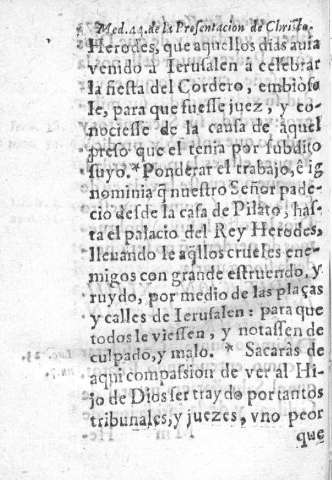 Med. 44. de la Presentacion de Christo
Herodes, que aquellos dias auia
venido à Ierusalen à celebrar
la fiesta del Cordero, embiòso
le, para que fuesse juez, y co-
nociesse de la causa de aquel
preso que el tenia por subdito
suyo. * Ponderar el trabajo, è ig
nominia q̃ nuestro Señor pade-
ciò desde la casa de Pilato, has-
ta el palacio del Rey Herodes,
lleuando le aq̃llos crueles ene-
migos con grande estruendo, y
ruydo, por medio de las plaças
y calles de Ierusalen: para que
todos le viessen, y notassen de
culpado, y malo. * Sacaràs de
aqui compassion de ver al Hi-
jo de Dios ser traydo por tantos
tribunales, y juezes, vno peor
que